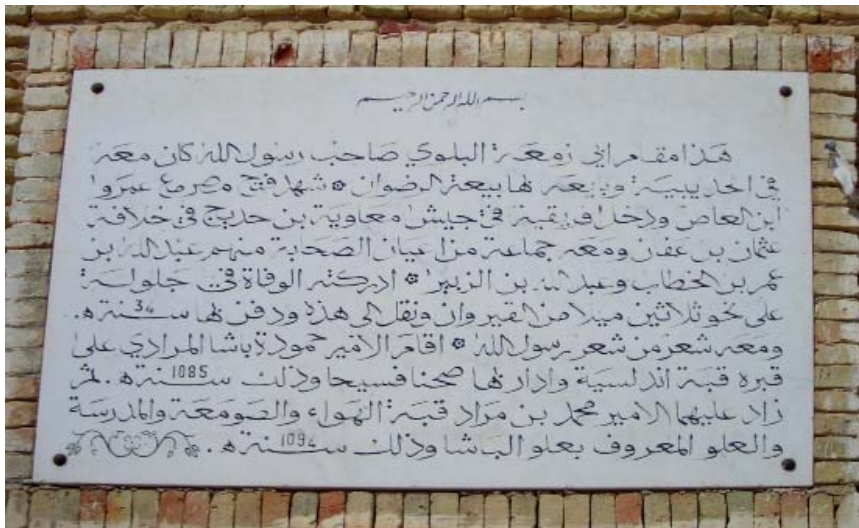 بسم الله الرحمن الرحيم
هذا مقام ابي زمعة البلوي صاحب رسول الله كان معه
في احديبية وبايعه بها بيعة الرضوان ۞ شهد فتح مصر مع عمروا
ابن العاص ودخل افريقية في جيش معاوية بن حديج في خلافة
عثمان بن عفان ومعه جماعة من اعيان الصحابة منهم عبد الله بن
عمر بن الخطاب وعبد الله بن الزبير ۞ ادركته الوفاة في جلولة
على نحو ثلاثين ميلا من القيروان ونقل الى هذه ودفن بها سنة 34 ه.
ومعه شعر من شعر رسول الله ۞ اقام الامير حمودة باشا المرادي على
قبره قبة اندلسية وادار بها صحنا فسيحا وذلك سنة 1085 ه. ثم
زاد عليهما الامير محمد بن مراد قبة الهواء والصومعة والمدرسة
والعلو المعروف بعلو الباشا وذلك سنة 1094 ه.